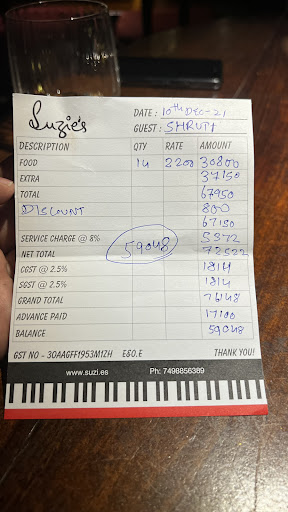 Suzie's
DATE : 10th Dec-21
GUEST : SHRUTI
DESCRIPTION QTY RATE AMOUNT
FOOD 14 3200 30800
EXTRA 37150
TOTAL 67950
DISCOUNT 800
67150
SERVICE CHARGE @ 8% 5372
NET TOTAL 59048 72522
CGST @ 2.5% 1814
SGST @ 2.5% 1814
GRAND TOTAL 76148
ADVANCE PAID 17100
BALANCE 59048
GST NO - 30AAGFF1953M1ZH E&O.E THANK YOU!
www.suzi.es Ph: 7498856389